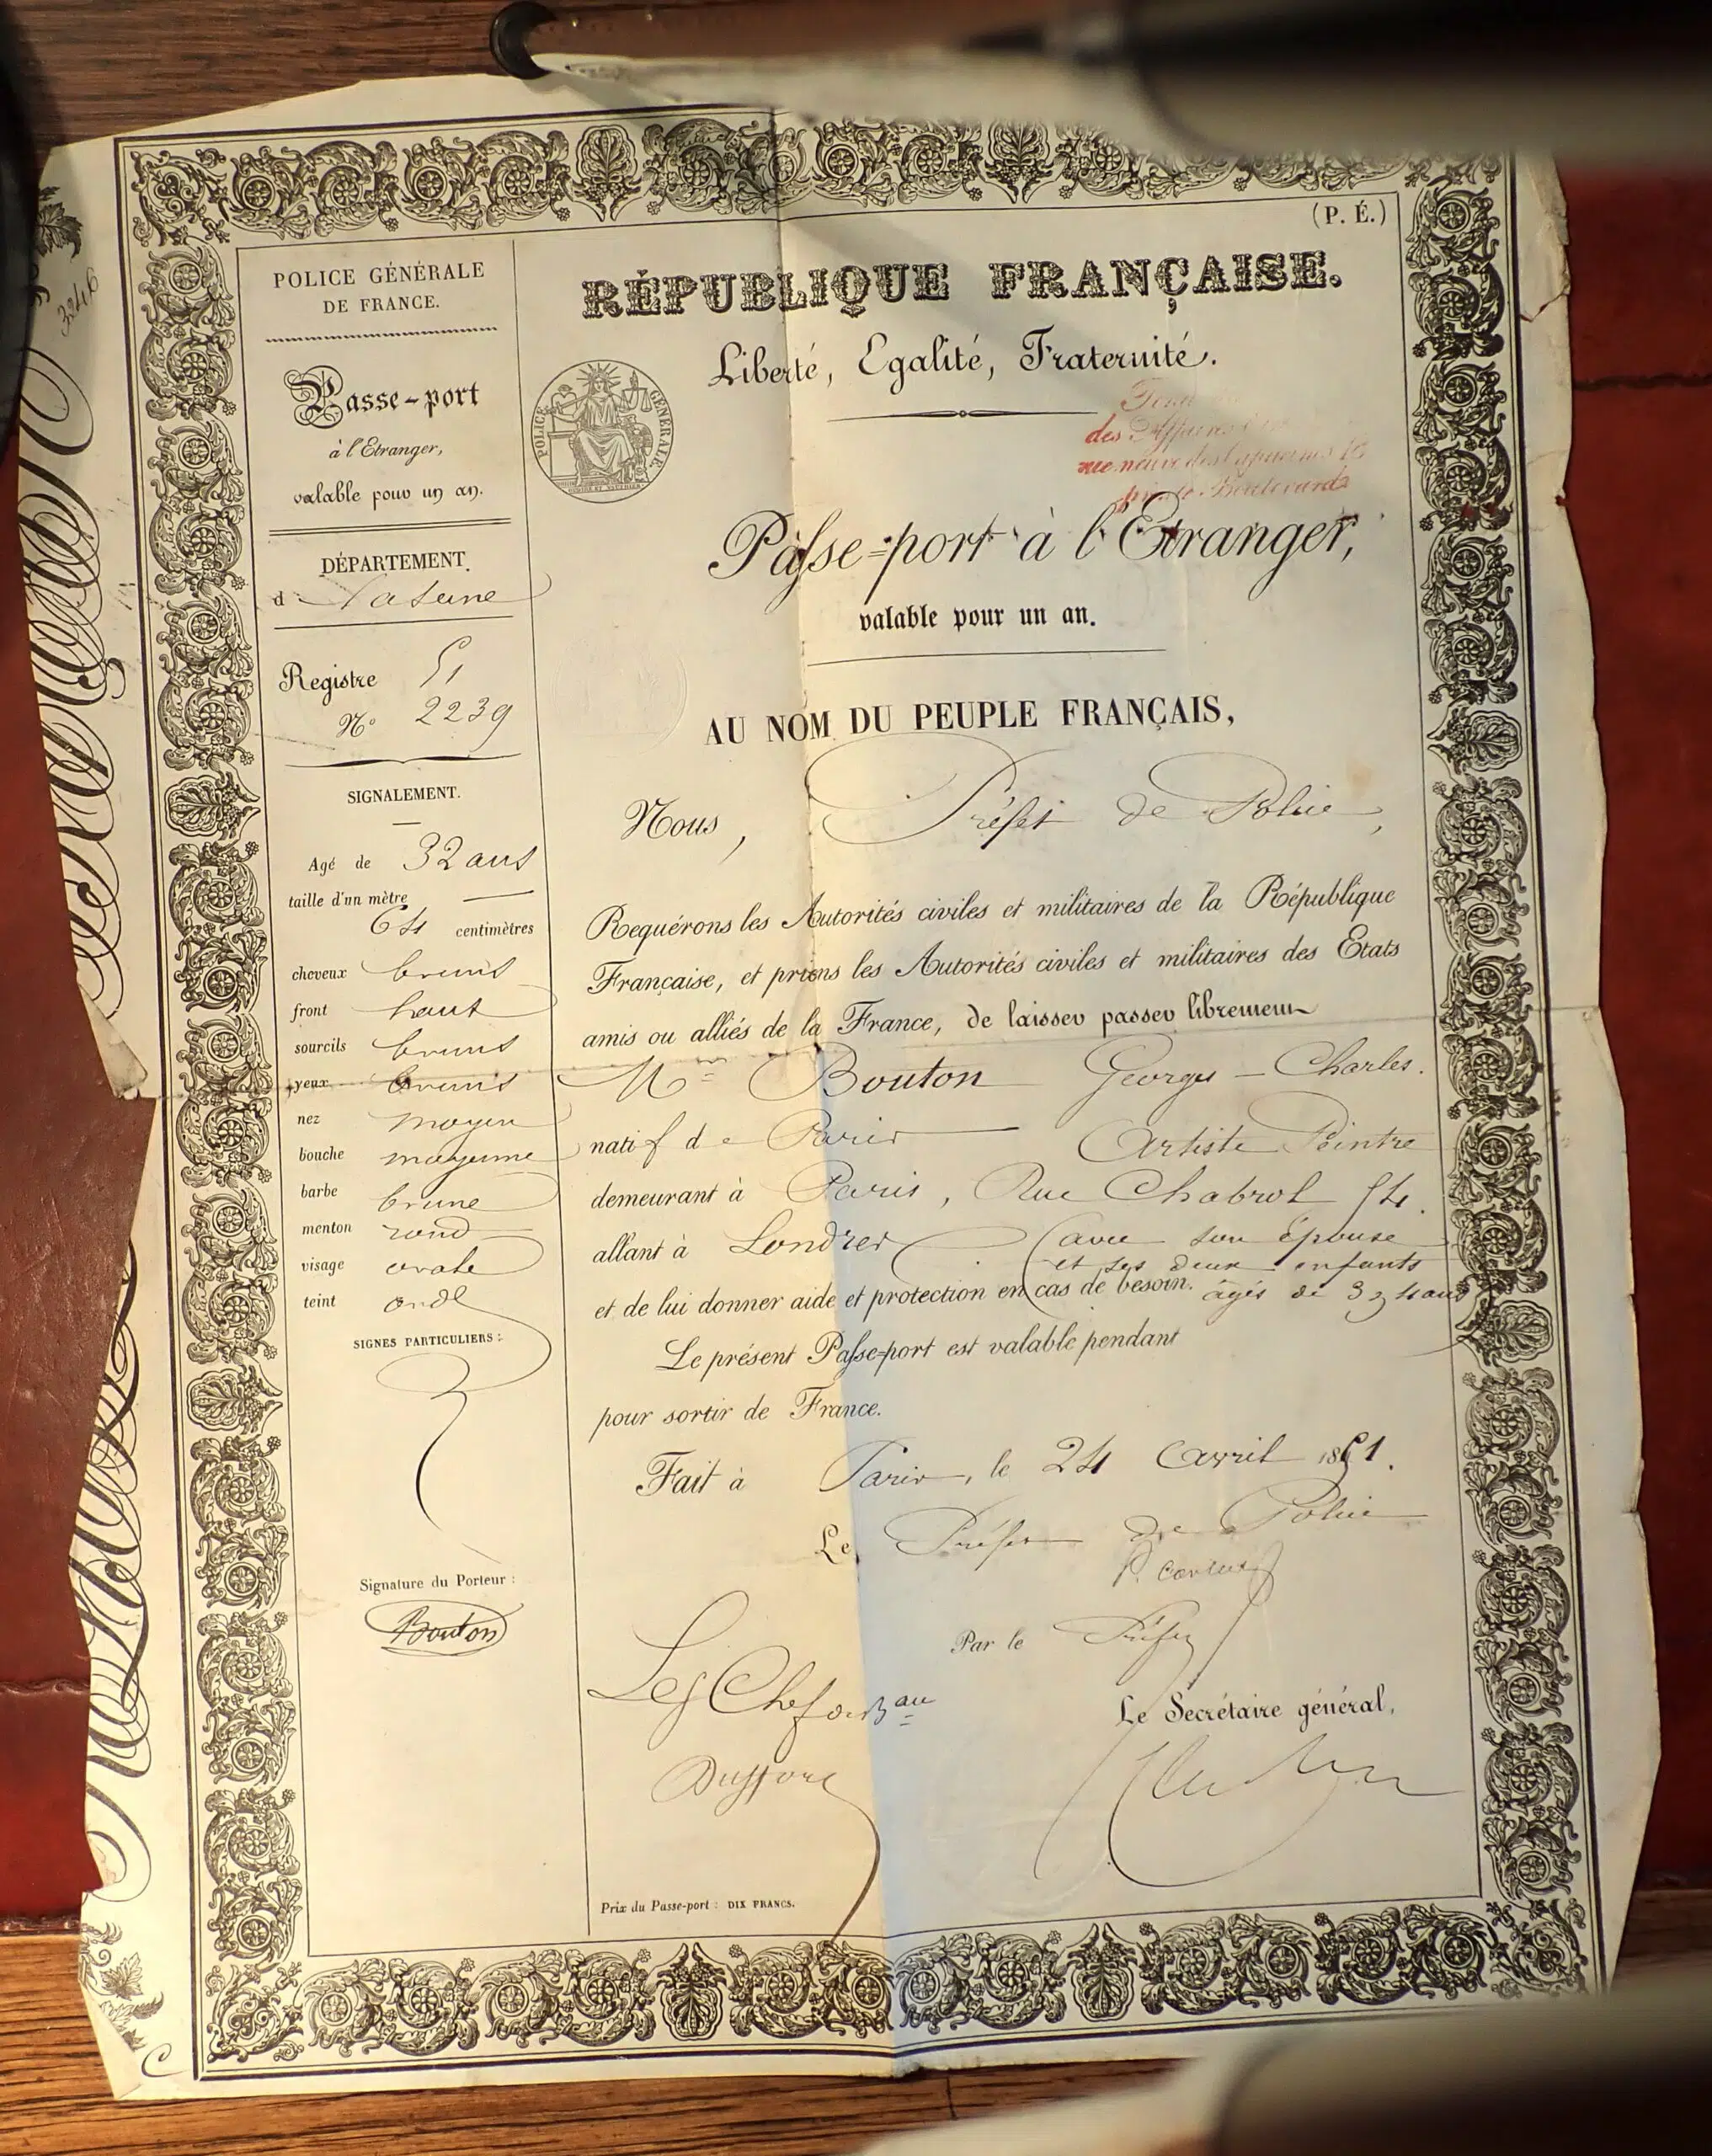 (P. É.)
POLICE GÉNÉRALE
DE FRANCE.
Passe-port
à l'Etranger,
valable pour un an.
DÉPARTEMENT
d La Seine
Registre 51
Nº 2239
SIGNALEMENT.
Agé de 32 ans
taille d'un mètre
64 centimètres
cheveux bruns
front haut
sourcils bruns
yeux bruns
nez moyen
bouche moyenne
barbe brune
menton rond
visage ovale
teint
SIGNES PARTICULIERS :
Signature du Porteur :
Bouton
3246
RÉPUBLIQUE FRANÇAISE.
Liberté, Egalité, Fraternité.
POLICE GÉNÉRALE
des Affaires
rue neuve des Capucines 16
Boulevards
Passe-port à l'Etranger,
valable pour un an.
AU NOM DU PEUPLE FRANÇAIS,
Nous, Préfet de Police,
Requérons les Autorités civiles et militaires de la République
Française, et prions les Autorités civiles et militaires des Etats
amis ou alliés de la France, de laisser passer librement
Bouton Georges - Charles.
natif de Paris Artiste Peintre
demeurant à Paris, Rue Chabrol 54.
allant à Londres (avec son épouse
et ses deux enfants
et de lui donner aide et protection en cas de besoin. âgés de 3 et 4 ans
Le présent Passe-port est valable pendant
pour sortir de France.
Fait à Paris, le 24 Avril 1851.
Le Préfet de Police
P. Carlier
Par le Préfet
Le Chef de Bau
Le Secrétaire général,
Prix du Passe-port : DIX FRANCS.